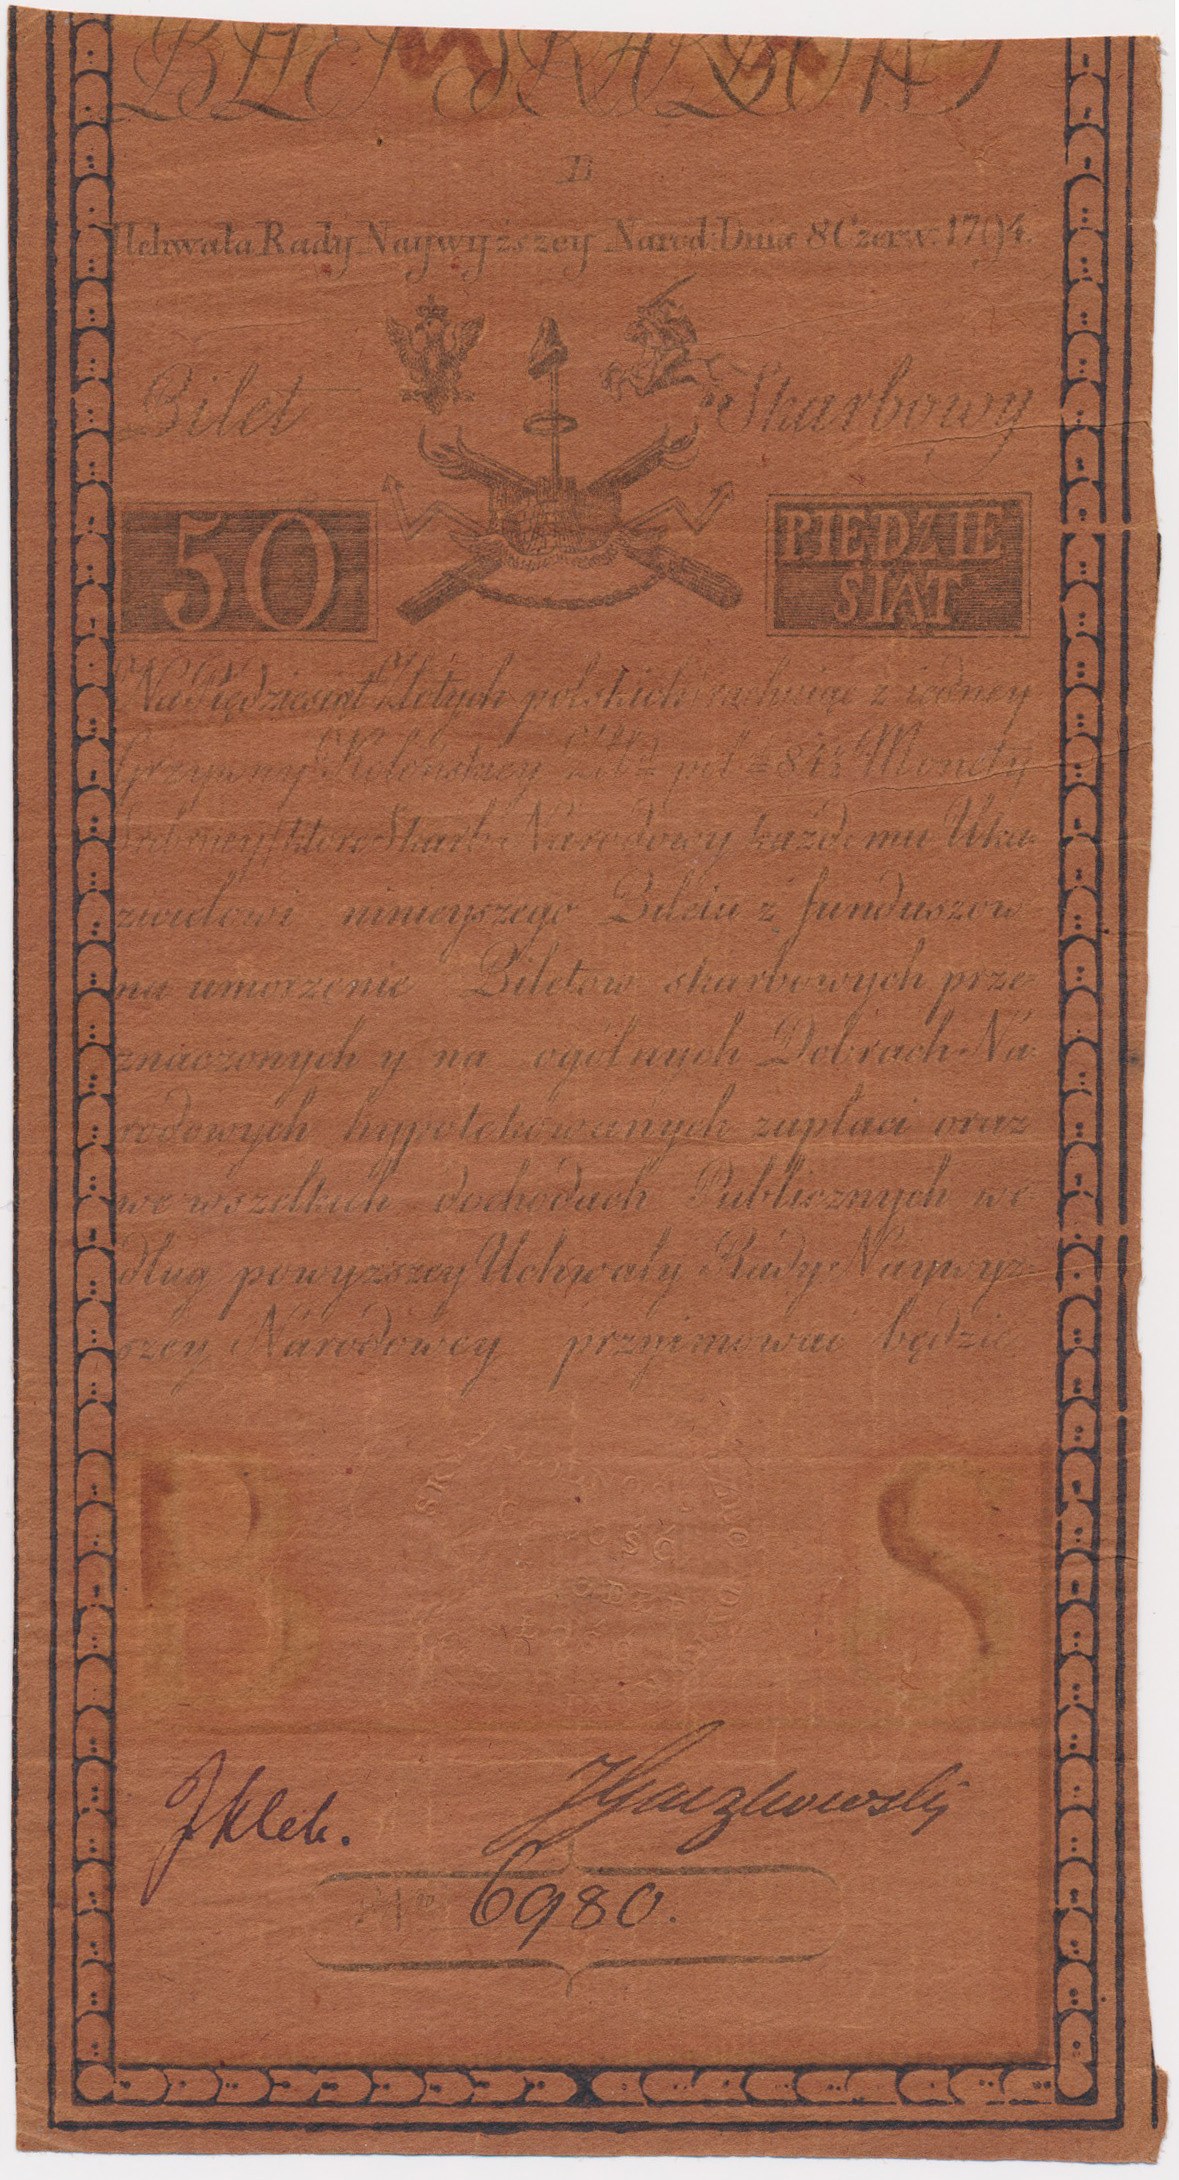 BILET SKARBOWY
B
Uchwała Rady Naywyższey Narod: Dnia 8 Czerw. 1794.
Bilet Skarbowy
50 PIĘDZIE
SIĄT
Na Piędziesiąt Złotych polskich rachuiąc z iedney
Grzywny Kolońskiey Zło pol 84½ Monety
Srebrney, które Skarb Narodowy każdemu Uka-
zicielowi ninieyszego Biletu z funduszow
na umorzenie Biletow skarbowych prze-
znaczonych y na ogólnych Dobrach Na-
rodowych hypotekowanych zapłaci oraz
we wszelkich dochodach Publicznych we-
dług powyższey Uchwały Rady Naywyż-
szey Narodowey przyimować będzie
B S
OŚĆ
JKlek. JGaczkowski
6980.